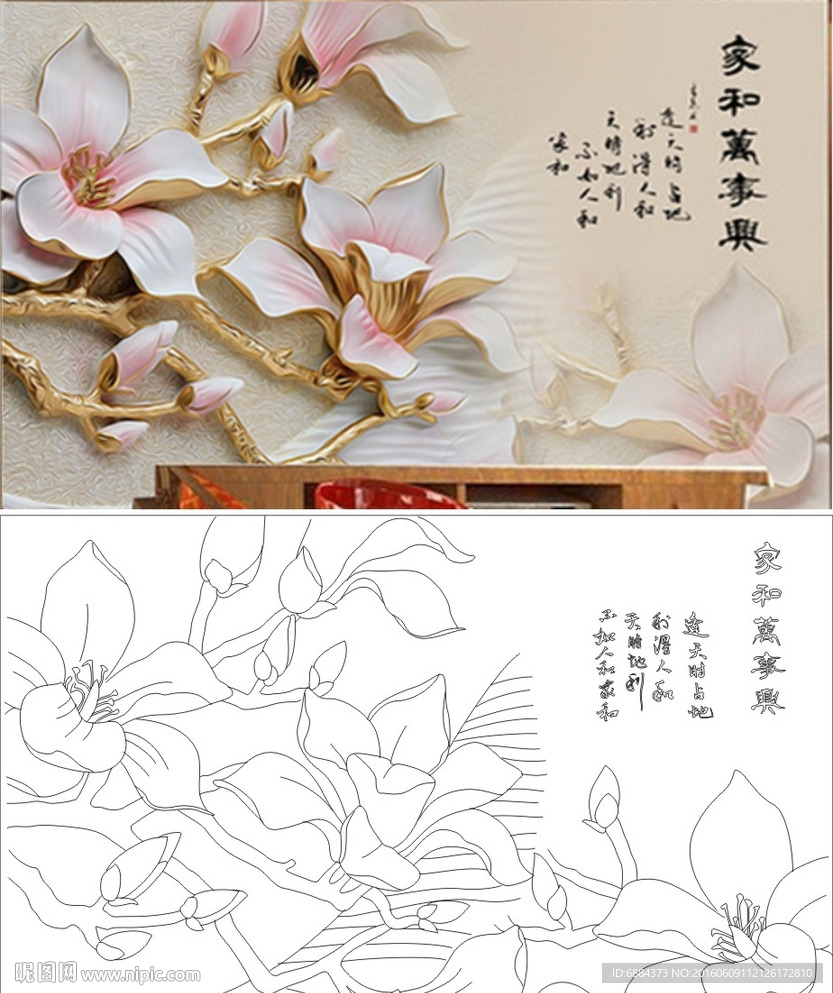 家和萬事興
逢天时占地
利得人和
天时地利
不如人和
家和
家和萬事興
逢天时占地
利得人和
天时地利
不如人和家和
昵图网 www.nipic.com
ID:6884373 NO:20160609112126172810